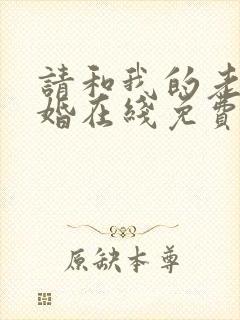 請和我的老
婚在綫免費
原缺本尊